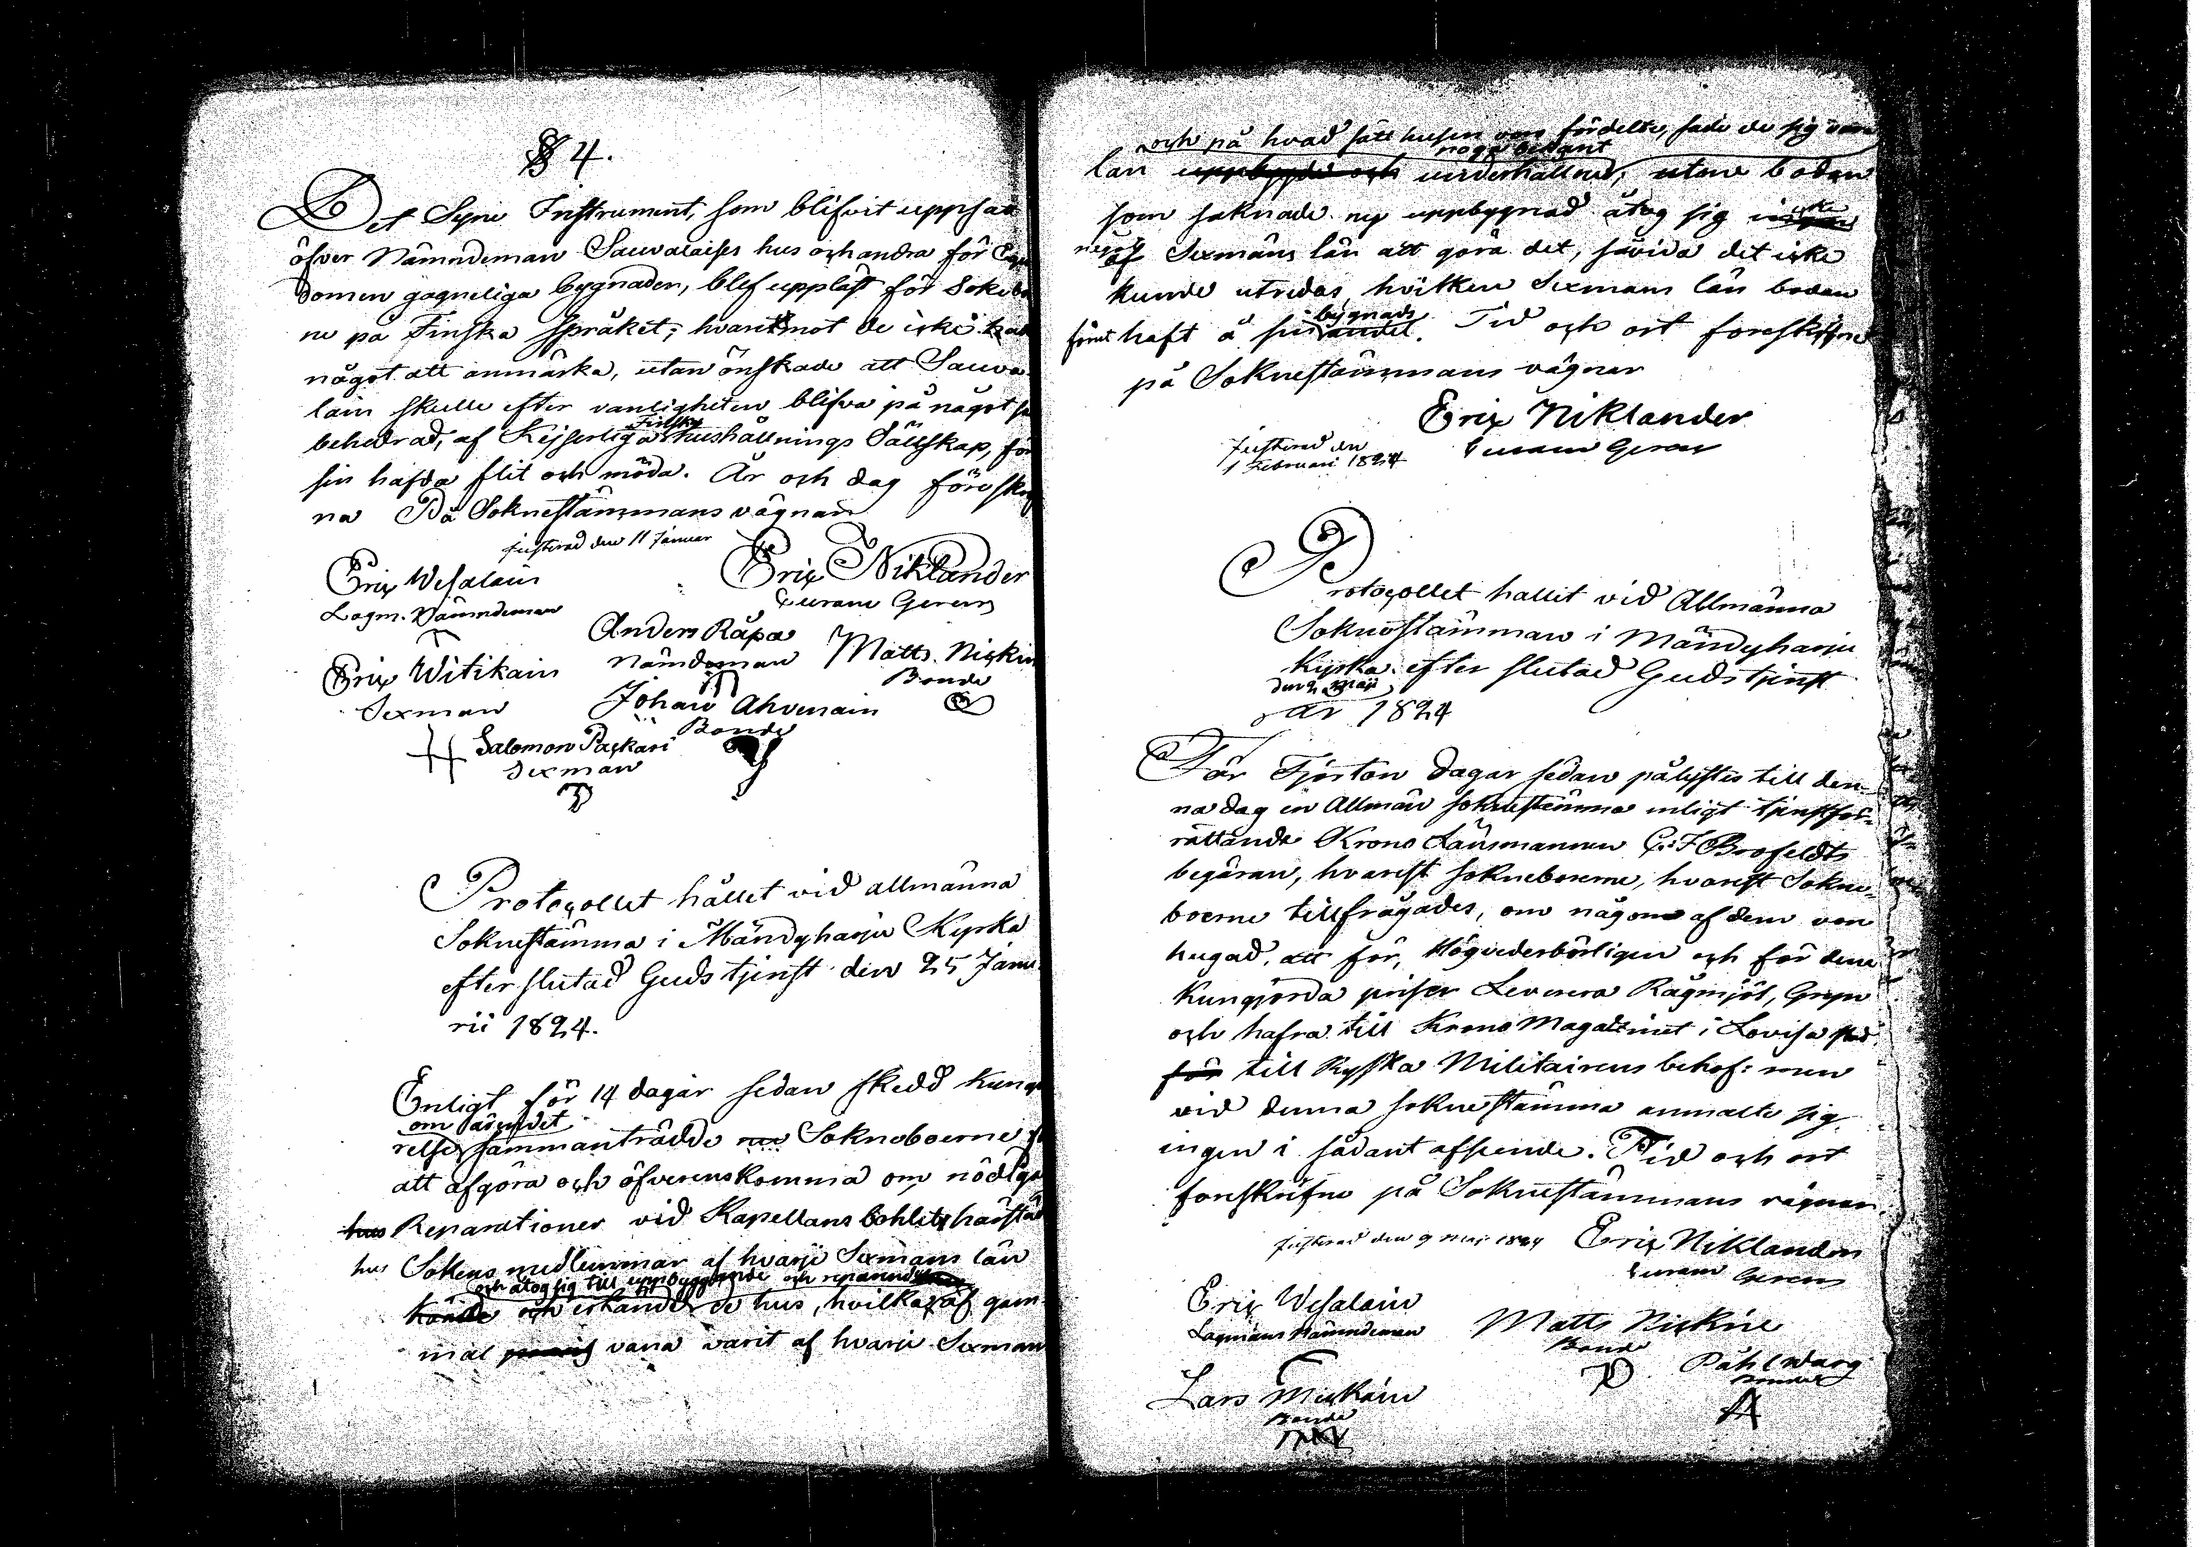 § 4.
Det Syne Instrument, som blifvit uppsatt
öfver Nämndeman Sauvalaises hus och andra för
domen gagneliga bygnader, blef uppläst för Sokebo
ne på Finska Språket; hvaremot de icke
något att anmärka, utan önskade att Sauva
lain skulle efter vanligheten blifva på något
behedrad, af Kejserliga Finska hushållnings Sällskap, för
sin hafda flit och möda. År och dag föreskrif
na På Soknestämmans vägnar
justerad den 11 Januar
Erix Wesalain
Lagm. Nämndeman
Erix Niklander
Euram Gerens
Anders Räpa
Nämdeman
Matts Niskin
Bonde
Erix Witikain
Sexman
Johan Ahvenain
Bonde
Salomon Packari
Sexman
Protocollet hållet vid allmänna
Soknestämma i Mändyharju Kyrka
efter slutad Gudstjenst den 25 Janu
rii 1824.
Enligt för 14 dagar sedan skedd kungö
om ärendet
relse sammanträdde Sokneboerne
att afgöra och öfverenskomma om nödiga
hus Reparationer vid Kapellans bohlits
hus Sokens medlemmar af hvarje Sexmans län
och åtog sig till uppbyggande och
kände och erkände de hus, hvilka af gam
mal vana varit af hvarje Sexman
och på hvad sätt husen voro fördelte, sade de sig vara
noga bekant
län uppbygde och underhållned; utan boden
som saknade ny uppbygnad åtog sig icke
något af Sexmäns län att göra det, såvida det icke
kunde utredas, hvilken Sexmans län boden
förut haft å sin bygnads andel. Tid och ort foreskrifne
på Soknestämmans vägnar
Erix Niklander
Euram Gerens
Justerad den
1 Februari 1824
Protocollet hallit vid Allmänna
Soknestämman i Mändyharju
Kyrka efter slutad Gudstjenst
den 2 Maji
år 1824
För Fjorton dagar sedan pålystes till den-
na dag en Allmän soknestämma enligt tjenstför-
rättande Krono Länsmannen G: F Brofeldts
begäran, hvarest sokneboerne, hvarest Sokne-
boerne tillfrågades, om någon af dem von
hugad, att för, Högvederbörligen och för dem
Kungjorda priser Leverera Rågmjöl, Gryn
och hafra till Krono Magazinet i Lovisa stad
för till Ryska Militairens behof: men
vid denna soknestämma anmälte sig
ingen i sådant afseende. Tid och ort
foreskrifne på Soknestämmans vägnar
Justerad den 9 Maj 1824
Erix Niklander
Euram Gerens
Erix Wesalain
Lagmans Nämndeman
Matts Niskine
Bonde
Påhl Warg
Bonde
Lars Muskain
Bonde